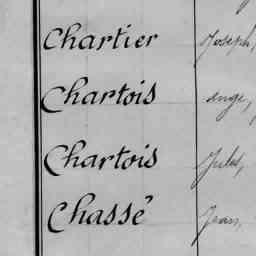 Chartier Joseph,
Chartois Ange,
Chartois Jules,
Chassé Jean,